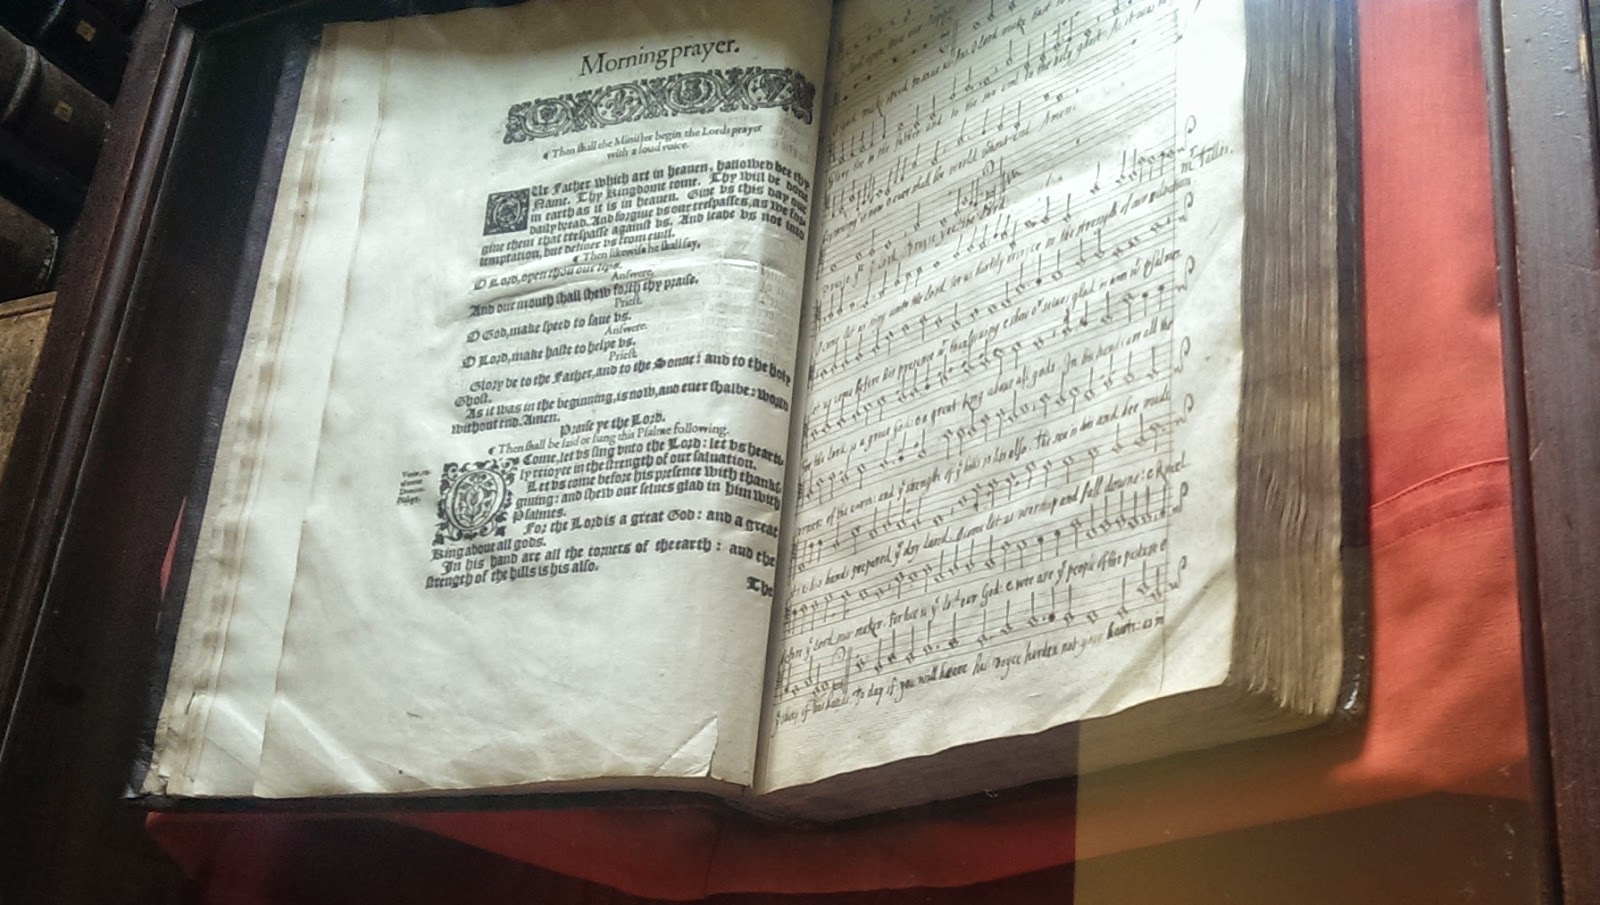 Morning prayer.
¶ Then shall the Minister begin the Lords prayer
with a loud voice.
OUr Father which art in heauen, hallowed bee thy
Name. Thy Kingdome come. Thy will be done
in earth as it is in heauen. Giue vs this day our
daily bread. And forgiue vs our trespasses, as we for-
giue them that trespasse against vs. And leade vs not into
temptation, but deliuer vs from euill.
¶ Then likewise he shall say,
O Lord, open thou our lips.
Answere.
And our mouth shall shew forth thy praise.
Priest.
O God, make speed to saue vs.
Answere.
O Lord, make haste to helpe vs.
Priest.
Glory be to the Father, and to the Sonne: and to the holy
Ghost.
As it was in the beginning, is now, and euer shalbe: world
without end. Amen.
Praise ye the Lord.
¶ Then shall be said or sung this Psalme following.
O Come, let vs sing vnto the Lord: let vs hearti-
ly reioyce in the strength of our saluation.
Let vs come before his presence with thanks-
giuing: and shew our selues glad in him with
Psalmes.
For the Lord is a great God: and a great
King aboue all gods.
In his hand are all the corners of the earth: and the
strength of the hills is his also.
The
Praise ye the Lord.
Mr Tallis.
come let us sing unto the lord, let us hartily reioyce in the strength of our salvation
let us come before his presence wt thanksgiving & shew or selves glad in him wt psalmes
for the lord is a great god: & a great king above all gods. In his hand are all the
corners of the earth: and ye strength of ye hills is his also. The sea is his and hee made
it & his hands prepared ye dry land. O come let us worship and fall downe: & kneel
before ye Lord our maker. For hee is ye lord our God: & wee are ye people of his pasture &
ye sheep of his hands. To day if you will heare his voyce harden not your hearts: as in